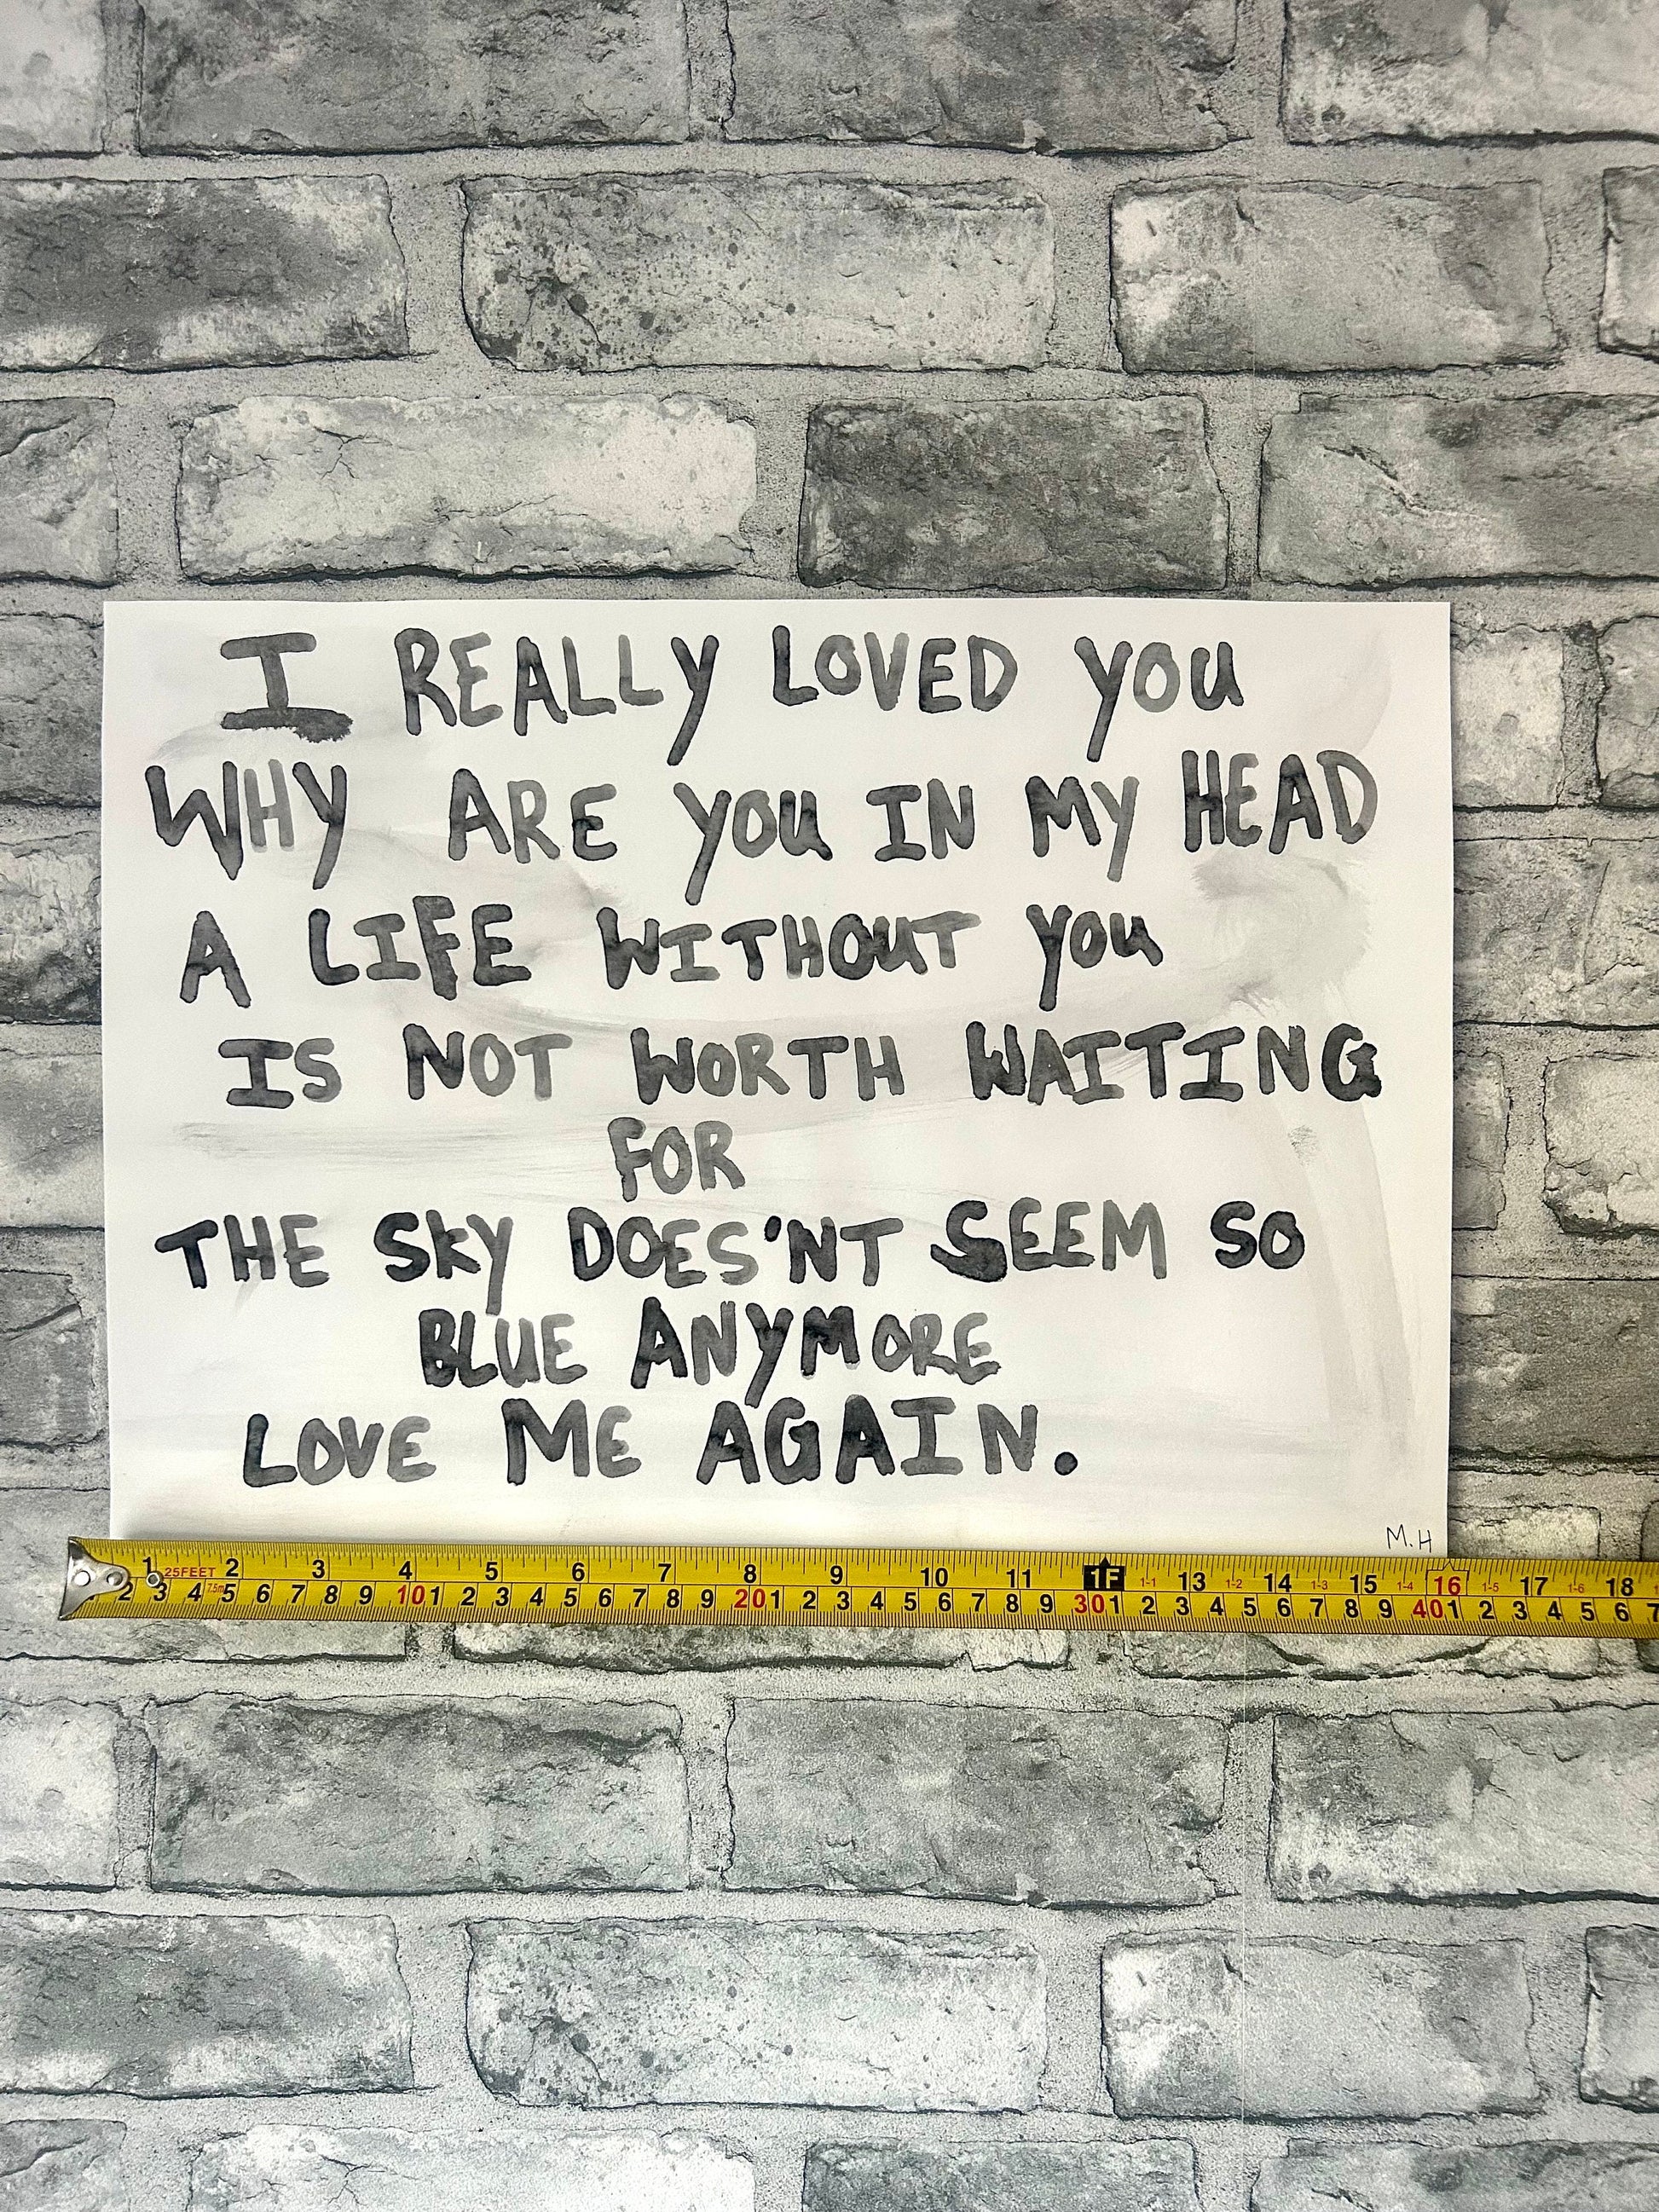 I REALLY LOVED YOU
WHY ARE YOU IN MY HEAD
A LIFE WITHOUT YOU
IS NOT WORTH WAITING
FOR
THE SKY DOES'NT SEEM SO
BLUE ANYMORE
LOVE ME AGAIN.
M.H
1 25FEET 2 3 4 5 6 7 8 9 10 11 1F 1-1 13 1-2 14 1-3 15 1-4 16 1-5 17 1-6 18
2 3 4 7.5m 5 6 7 8 9 10 1 2 3 4 5 6 7 8 9 20 1 2 3 4 5 6 7 8 9 30 1 2 3 4 5 6 7 8 9 40 1 2 3 4 5 6 7